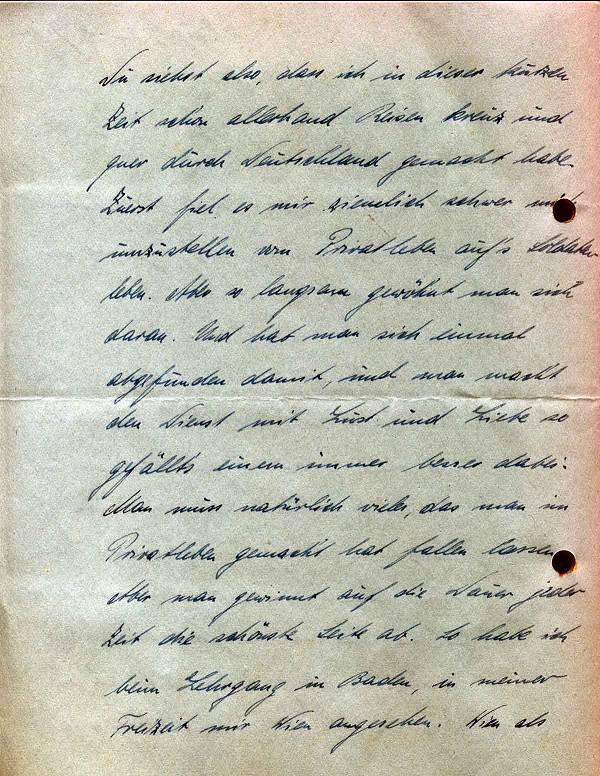 Du siehst also, dass ich in dieser kurzen
Zeit schon allerhand Reisen kreuz und
quer durch Deutschland gemacht habe.
Zuerst fiel es mir ziemlich schwer mich
umzustellen vom Privatleben auf's Soldaten-
leben. Aber so langsam gewöhnt man sich
daran. Und hat man sich einmal
abgefunden damit, und man macht
den Dienst mit Lust und Liebe so
gefällts einem immer besser dabei.
Man muss natürlich vieles, das man im
Privatleben gemacht hat fallen lassen.
Aber man gewinnt auf die Dauer jeder
Zeit die schönste Seite ab. So habe ich
beim Lehrgang in Baden, in meiner
Freizeit mir Wien angesehen. Wien als